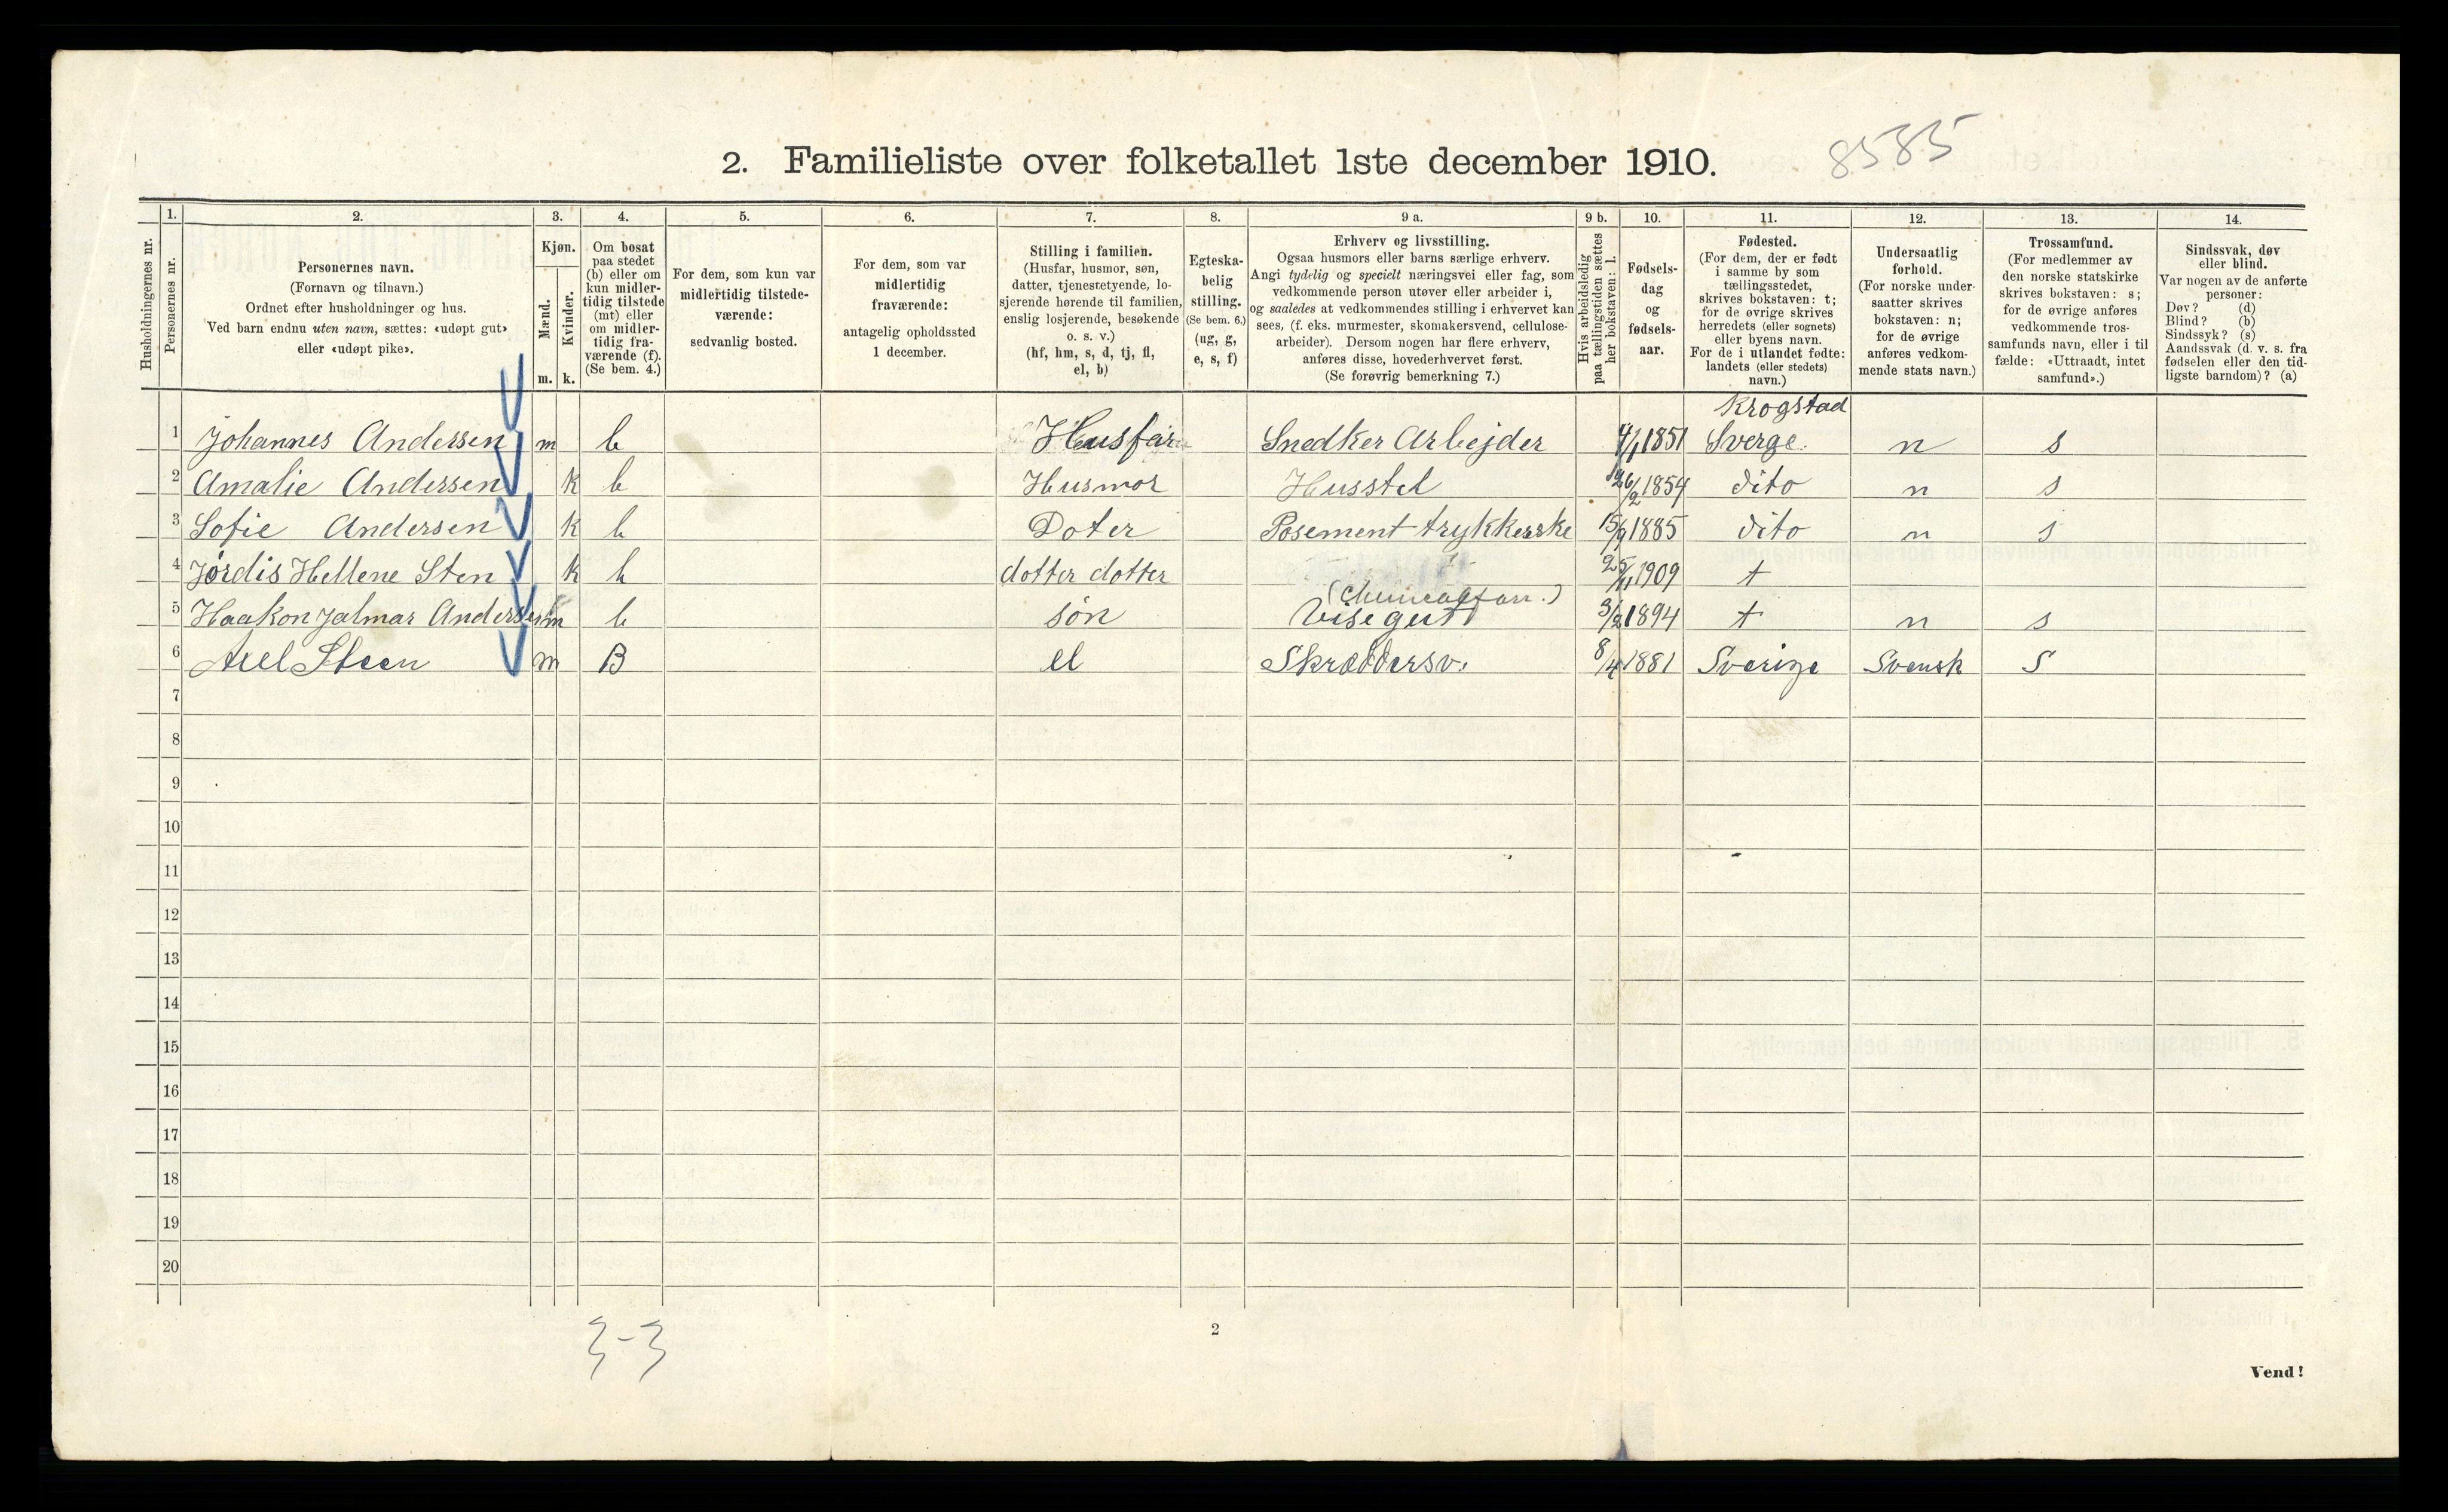 2. Familieliste over folketallet 1ste december 1910.
8585
Husholdningernes nr.
1.
Personernes nr.
2.
Personernes navn.
(Fornavn og tilnavn.)
Ordnet efter husholdninger og hus.
Ved barn endnu uten navn, sættes: «udøpt gut»
eller «udøpt pike».
3.
Kjøn.
Mænd.
Kvinder.
m. k.
4.
Om bosat
paa stedet
(b) eller om
kun midler-
tidig tilstede
(mt) eller
om midler-
tidig fra-
værende (f).
(Se bem. 4.)
5.
For dem, som kun var
midlertidig tilstede-
værende:
sedvanlig bosted.
6.
For dem, som var
midlertidig
fraværende:
antagelig opholdssted
1 december.
7.
Stilling i familien.
(Husfar, husmor, søn,
datter, tjenestetyende, lo-
sjerende hørende til familien,
enslig losjerende, besøkende
o. s. v.)
(hf, hm, s, d, tj, fl,
el, b)
8.
Egteska-
belig
stilling.
(Se bem. 6.)
(ug, g,
e, s, f)
9 a.
Erhverv og livsstilling.
Ogsaa husmors eller barns særlige erhverv.
Angi tydelig og specielt næringsvei eller fag, som
vedkommende person utøver eller arbeider i,
og saaledes at vedkommendes stilling i erhvervet kan
sees, (f. eks. murmester, skomakersvend, cellulose-
arbeider). Dersom nogen har flere erhverv,
anføres disse, hovederhvervet først.
(Se forøvrig bemerkning 7.)
9 b.
Hvis arbeidsledig
paa tællingstiden sættes
her bokstaven: l.
10.
Fødsels-
dag
og
fødsels-
aar.
11.
Fødested.
(For dem, der er født
i samme by som
tællingsstedet,
skrives bokstaven: t;
for de øvrige skrives
herredets (eller sognets)
eller byens navn.
For de i utlandet fødte:
landets (eller stedets)
navn.)
12.
Undersaatlig
forhold.
(For norske under-
saatter skrives
bokstaven: n;
for de øvrige
anføres vedkom-
mende stats navn.)
13.
Trossamfund.
(For medlemmer av
den norske statskirke
skrives bokstaven: s;
for de øvrige anføres
vedkommende tros-
samfunds navn, eller i til
fælde: «Uttraadt, intet
samfund».)
14.
Sindssvak, døv
eller blind.
Var nogen av de anførte
personer:
Døv? (d)
Blind? (b)
Sindssyk? (s)
Aandssvak (d. v. s. fra
fødselen eller den tid-
ligste barndom)? (a)
Krogstad
1 Johannes Andersen m b Husfar Snedker Arbejder 4/1 1851 Sverge. n s
2 Amalie Andersen k b Husmor Husstel 26/2 1854 dito n s
3 Sofie Andersen k b Doter Posement trykkerske 15/9 1885 dito n s
4 Jordis Hellene Sten k b dotter dotter 25/11 1909 t
5 Haakon Jalmar Andersen m b søn Visegutt 3/2 1894 t n s
6 Axel Steen m B el Skræddersv. 8/4 1881 Sverige Svensk S
7
8
9
10
11
12
13
14
15
16
17
18
19
20
3-3
2
Vend!